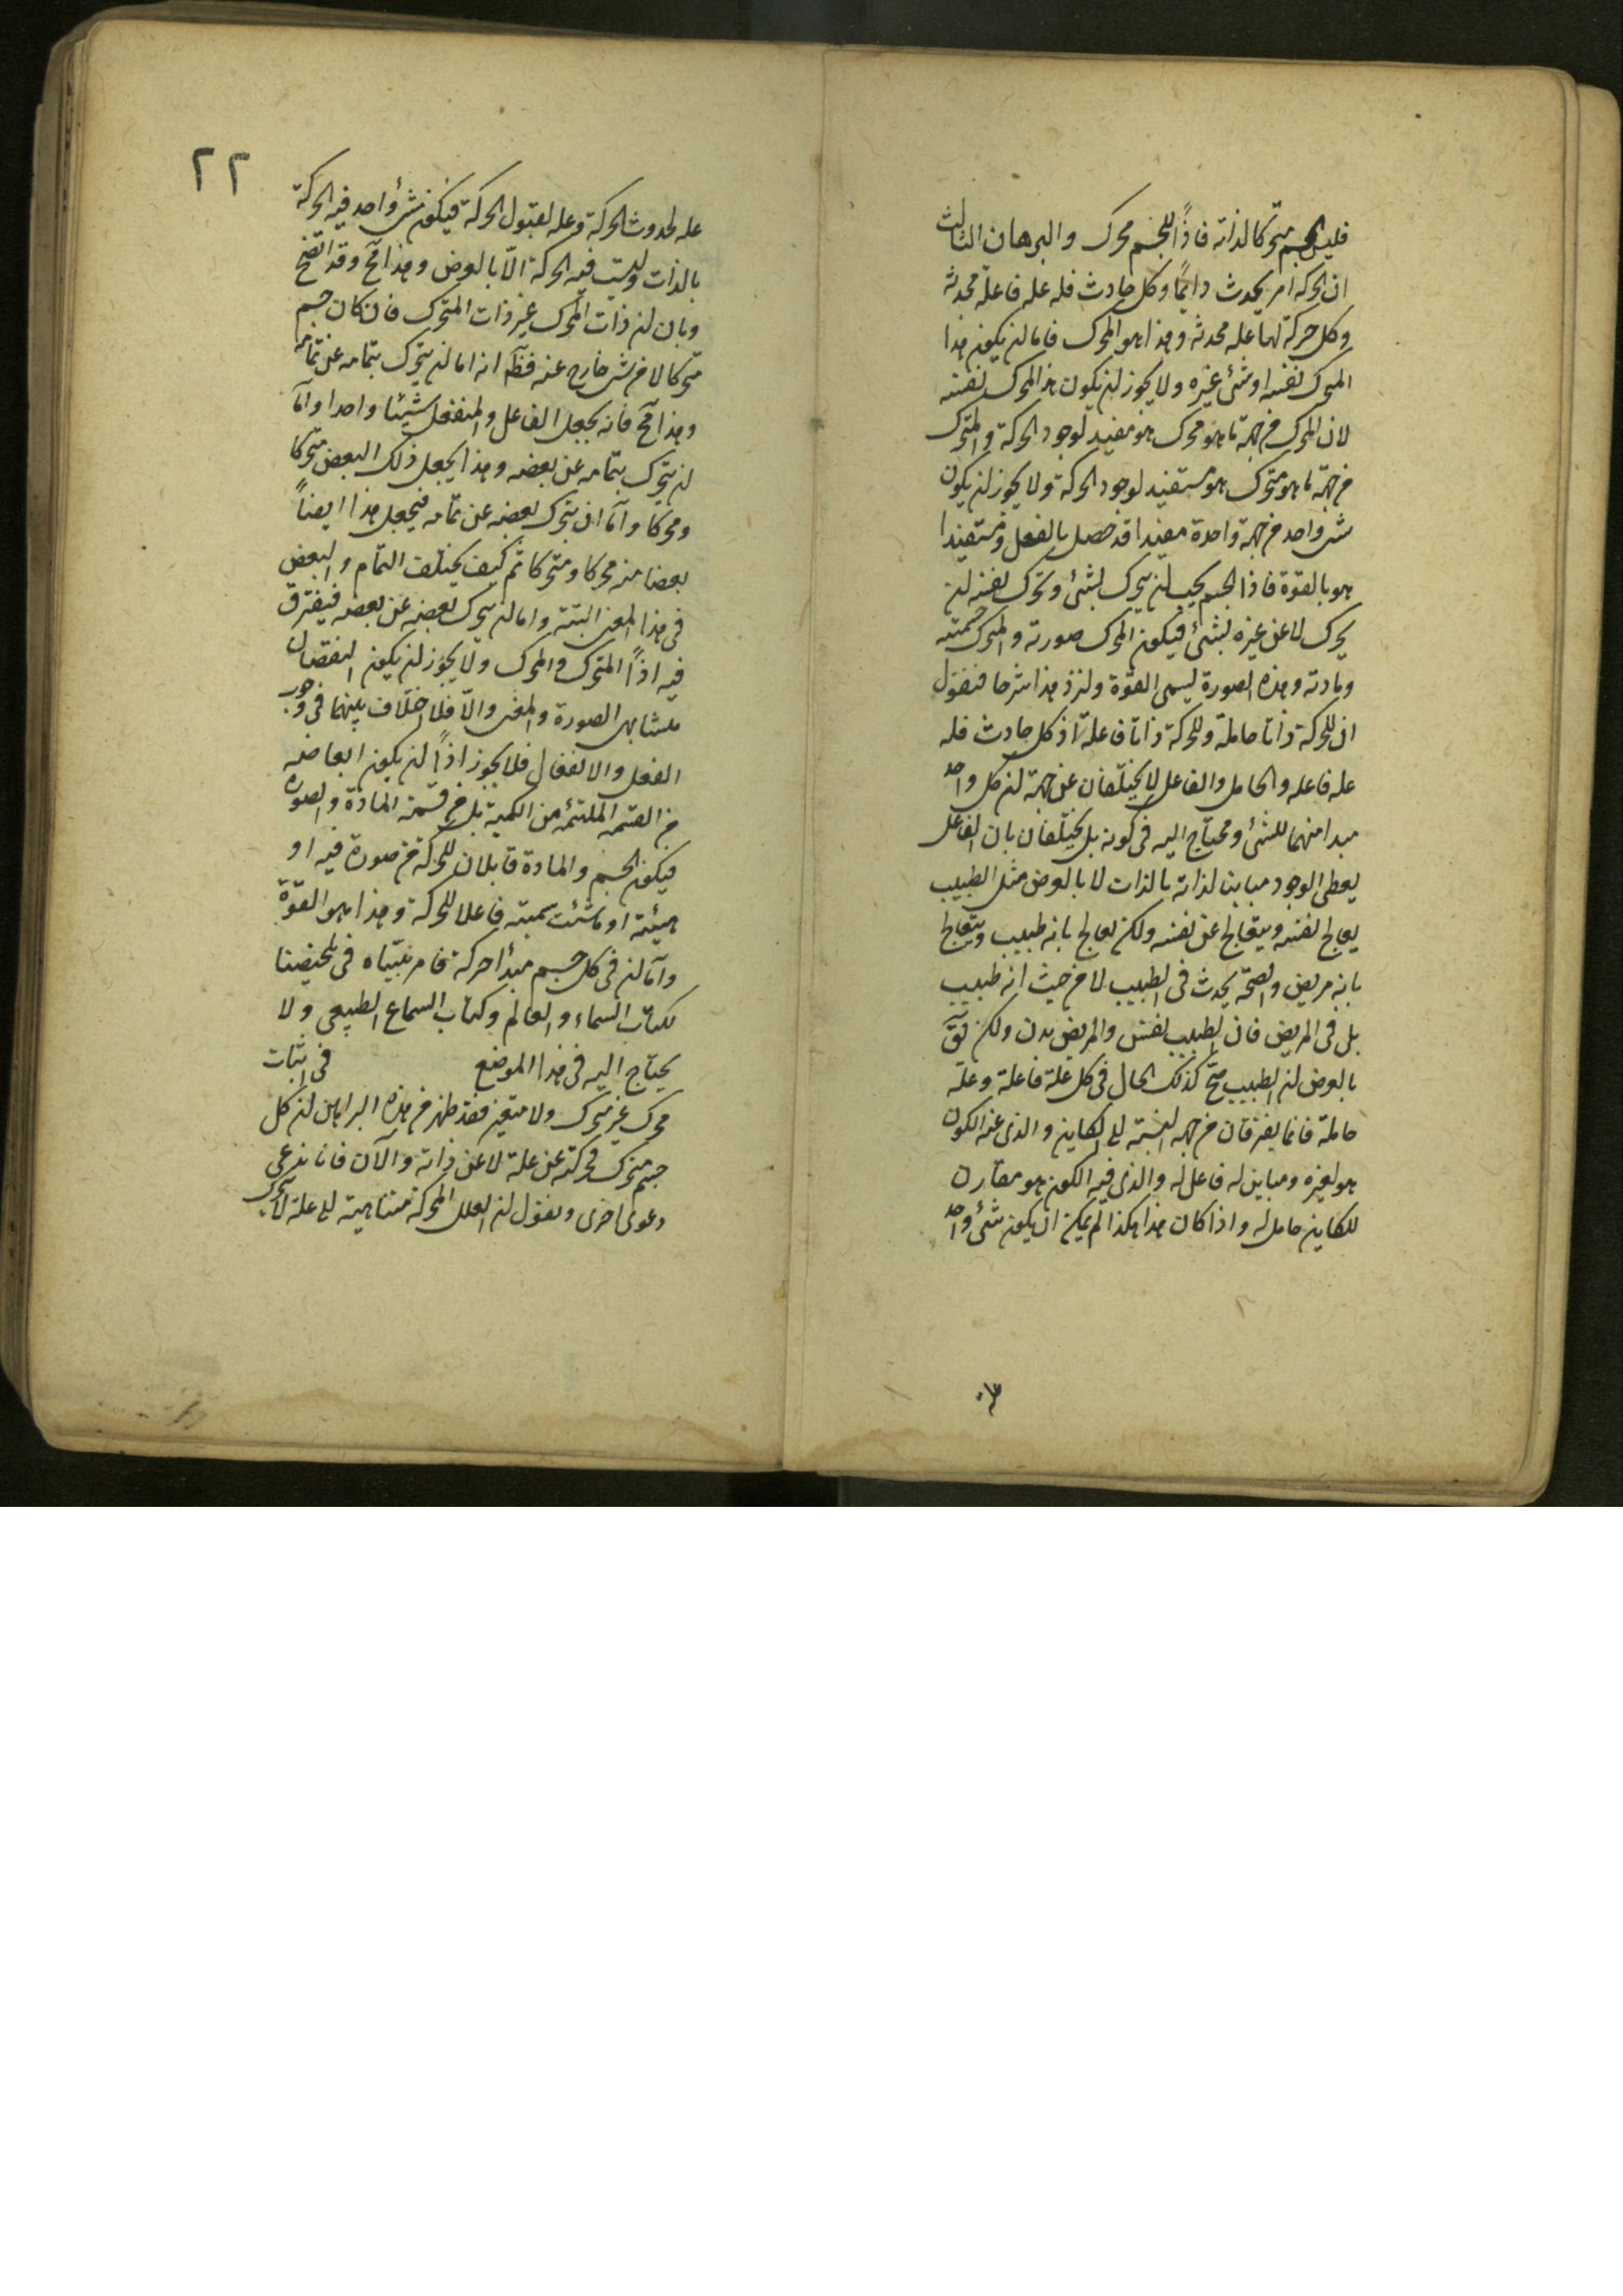 فليس الجسم متحركا لذاته فاذًا للجسم محرك والبرهان الثالث
ان الحركة امر يحدث دائمًا وكل حادث فله علة فاعلة محدثة
وكل حركة لها علة محدثة وهذا هو المحرك فاما لن يكون هذا
المحرك نفسه او شئ غيره ولا يجوز لن يكون هذا المحرك نفسه
لان المحرك من جهة ما هو محرك هو مفيد لوجود الحركة والمتحرك
من جهة ما هو متحرك هو مستفيد لوجود الحركة ولا يجوز لن يكون
شئ واحد من جهة واحدة مفيدا قد حصل بالفعل ومستفيدا
هو بالقوة فاذا الجسم يجب لن يتحرك بشئ وتحرك نفسه لن
يحرك لا عن غيره بشئ فيكون المحرك صورته والمتحرك جسميته
ومادته وهذه الصورة ليسمى القوة ولنزد هذا شرحا فنقول
ان للحركة ذاتا حاملة وللحركة ذاتا فاعلة اذ كل حادث فله
علة فاعله والحامل والفاعل لا يختلفان عن جهة لن كل واحد
مبدا منهما للشئ ومحتاج اليه فى كونه بل يختلفان بان الفاعل
يعطى الوجود مباينا لذاته بالذات لا بالعرض مثل الطبيب
يعالج نفسه ويتعالج عن نفسه ولكن يعالج بانه طبيب ويتعالج
بانه مريض والصحة يحدث فى الطبيب لا من حيث انه طبيب
بل فى المريض فان الطبيب نفس والمريض بدن ولكن
بالعرض لن الطبيب صحّ كذلك الحال فى كل علة فاعلة وعلة
حاملة فانما يفترقان من جهة النسبة الى الكاين والذى عنه الكون
هو لغيره ومباين له فاعل له والذى فيه الكون هو مقارن
للكاين حامل له واذا كان هذا هكذا لم يمكن ان يكون شئ واحد
٢٢
علة لحدوث الحركة وعلة لقبول الحركة فيكون شئ واحد فيه الحركة
بالذات وليست فيه الحركة الّا بالعرض وهذا مح وقد اتضح
وبان لن ذات المحرك غير ذات المتحرك فان كان جسم
متحركا لا من شئ خارج عنه فظ انه اما لن يتحرك بتمامه عن تمامه
وهذا مح فانه يجعل الفاعل والمنفعل شيئا واحدا واما
لن يتحرك بتمامه عن بعضه وهذا يجعل ذلك البعض متحركا
ومحركا واما ان يتحرك بعضه عن تمامه فيجعل هذا ايضاً
بعضا منه محركا ومتحركا ثم كيف يختلف التمام والبعض
فى هذا المعنى البتة واما لن يتحرك بعضه عن بعضه فيفترق
فيه اذاً المتحرك والمحرك ولا يجوز لن يكون انفصال
متشابهى الصورة والمعنى والّا فلا اختلاف بينهما فى وجوب
الفعل والانفعال فلا يجوز اذاً لن يكون ابعاضه
من القسمة الملتئمة من الكمية بل من قسمة المادة والصورة
فيكون الجسم والمادة قابلان للحركة من صورة فيه او
هيئة او ما شئت سميته فاعلا للحركة وهذا هو القوة
واما لن فى كل جسم مبدأ حركة فامر بيّناه فى تلخيصنا
لكتاب السماء والعالم وكتاب السماع الطبيعى ولا
يحتاج اليه فى هذا الموضع فى اثبات
محرك غير متحرك ولا متغير فقد ظهر من هذه البراهين لن كل
جسم متحرك فحركته عن علة لا عن ذاته والآن فانا ندعى
دعوى اخرى ونقول لن العلل المحركة متناهية الى علة لا تتحرك